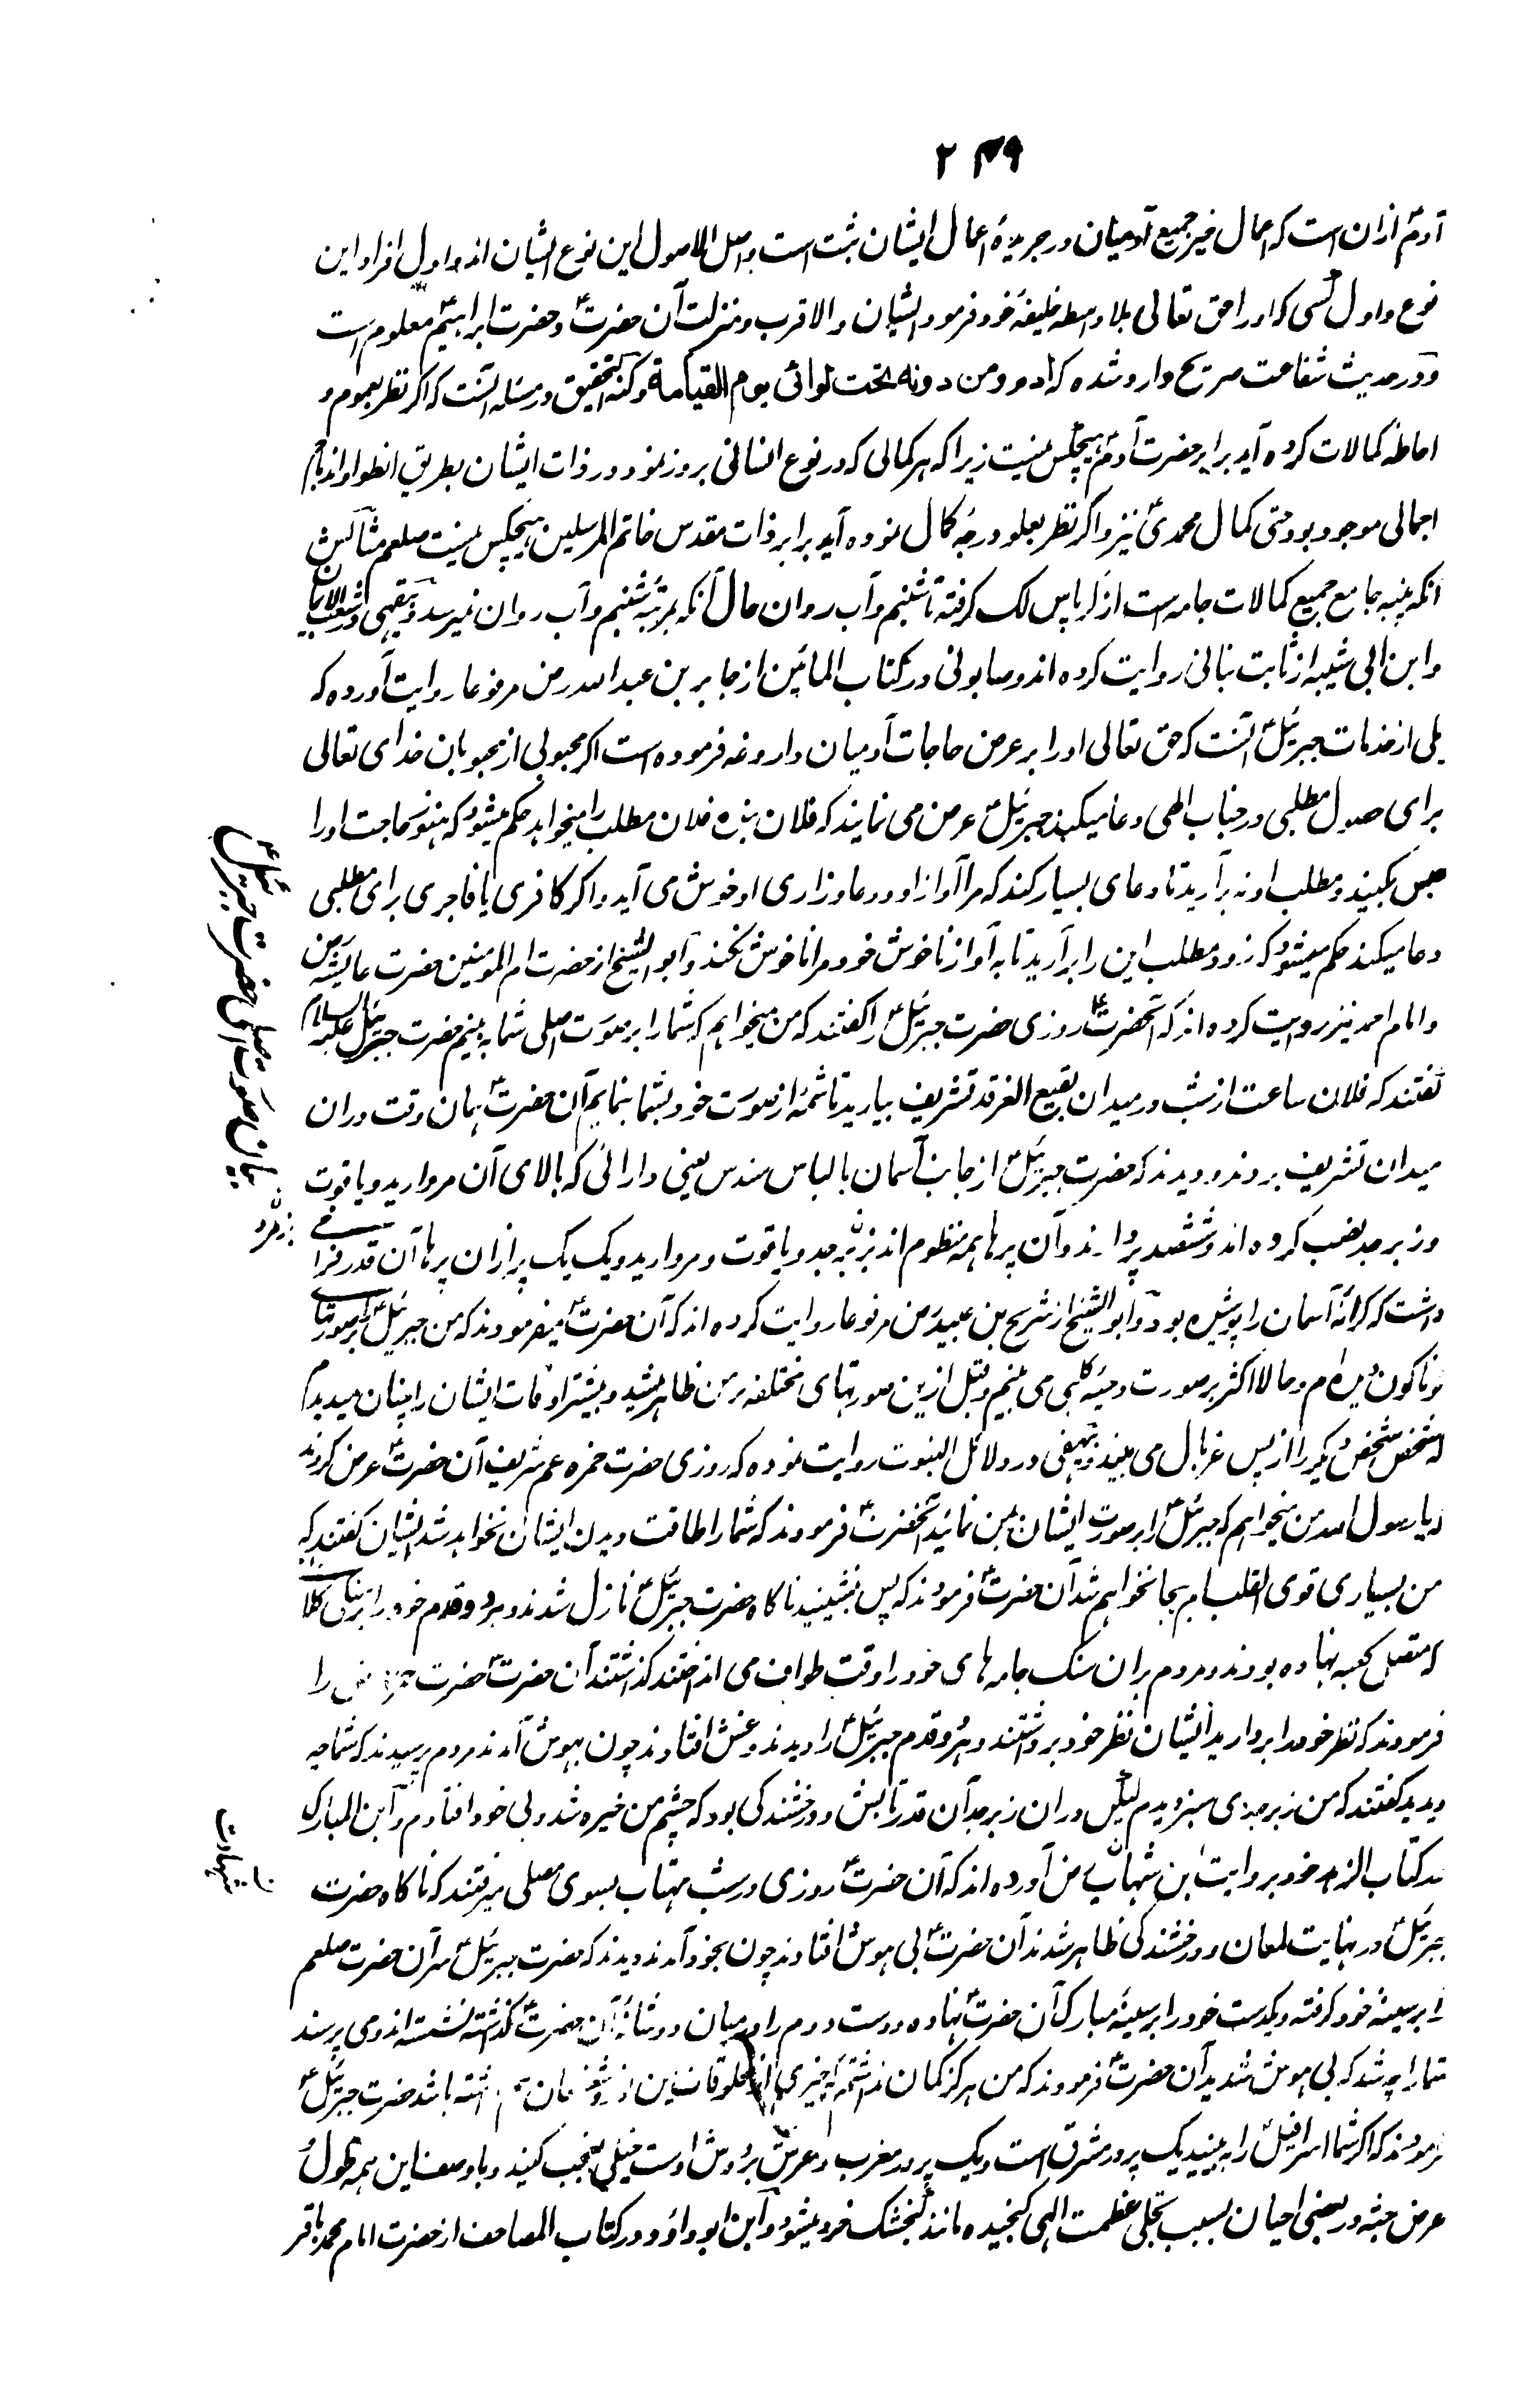 ۲۴۹
آدمؑ ازان است که اعمال خیر جمیع آدمیان در جریدهٔ اعمال ایشان ثبت است و اصل الاصول این نوع ایشان اند و اول افراد این
نوع و اول کسی که او را حق تعالی بلا واسطه خلیفهٔ خود فرمود ایشان والاقرب و منزلت آن حضرتؐ و حضرت ابراهیمؑ معلوم است
و در حدیث شفاعت صریح وارد شده که ادم ومن دونه تحت لوائی یوم القیامة و کنه تحقیق درین مسئله آنست که اگر نظر بعموم و
احاطهٔ کمالات کرده آید برابر حضرت آدمؑ هیچکس نیست زیرا که هر کمالی که در نوع انسانی بروز نمود در ذات ایشان بطریق انطوا و اندماج
اجمالی موجود بود حتی کمال محمدیؐ نیز و اگر نظر بعلو درجهٔ کمال نموده آید برابر ذات مقدس خاتم المرسلین هیچکس نیست صلعم مثالش
آنکه پنبه جامع جمیع کمالات جامه است از کرپاس لک گرفته تا شبنم و آب روان حال آنکه بمرتبهٔ شبنم و آب روان نمیرسد و بیهقی در شعب الایمان
و ابن ابی شیبه از ثابت بنانی روایت کرده اند و صابونی در کتاب المائتین از جابر بن عبد الله رض مرفوعا روایت آورده که
یکی از خدمات جبرئیلؑ آنست که حق تعالی او را بر عرض حاجات آدمیان داروغه فرموده است اگر محبوبی از محبوبان خدای تعالی
برای حصول مطلبی در جناب الهی دعا میکند جبرئیلؑ عرض می نمایند که فلان بنده فلان مطلب را میخواهد حکم میشود که هنوز حاجت او را
حبس بکنید و مطلب او نه برآرید تا دعای بسیار کند که مرا آواز او و دعا و زاری او خوش می آید و اگر کافری یا فاجری برای مطلبی
دعا میکند حکم میشود که زود مطلب این را برآرید تا به آواز ناخوش خود مرا ناخوش نکند و ابو الشیخ از حضرت ام المومنین حضرت عایشه رض
و امام احمد نیز روایت کرده اند که آنحضرتؐ روزی حضرت جبرئیلؑ را گفتند که من میخواهم که شما را بر صورت اصلی شما به بینم حضرت جبرئیل علیه السلام
گفتند که فلان ساعت از شب در میدان بقیع الغرقد تشریف بیارید تا شمهٔ از صورت خود بشما بنمایم آن حضرتؐ همان وقت دران
میدان تشریف بردند و دیدند که حضرت جبرئیلؑ از جانب آسمان با لباس سندس یعنی دارائی که بالای آن مروارید و یاقوت
و زبرجد نصب کرده اند و ششصد پر دارند و آن پرها همه منظوم اند بزبرجد و یاقوت و مروارید و یک یک پر ازان پرها آن قدر فراخی
داشت که کرانهٔ آسمان را پوشیده بود و ابو الشیخ از شریح بن عبید رض مرفوعا روایت کرده اند که آن حضرتؐ میفرمودند که من جبرئیلؑ را بر صورتهای
گوناگون دیده ام و حالا اکثر بر صورت دحیهٔ کلبی می بینم و قبل ازین صورتهای مختلفه بر من ظاهر میشد و بیشتر اوقات ایشان را چنان میدیدم
که شخصی شخص دیگر را از پس غربال می بیند و بیهقی در دلائل النبوت روایت نموده که روزی حضرت حمزه عم شریف آن حضرتؐ عرض کردند
که یا رسول الله من میخواهم که جبرئیلؑ را بر صورت ایشان بمن نمائید آنحضرتؐ فرمودند که شما را طاقت دیدن ایشان نخواهد شد ایشان گفتند که
من بسیار قوی القلب ام بیجا نخواهم شد آن حضرتؐ فرمودند که پس بنشینید ناگاه حضرت جبرئیلؑ نازل شدند و هر دو قدم خود را بر سنگی کلان
که متصل کعبه نهاده بودند و مردم بران سنگ جامه های خود را وقت طواف می انداختند گذاشتند آن حضرتؐ حضرت حمزه رض را
فرمودند که نظر خود را بردارید ایشان نظر خود برداشتند و هر دو قدم جبرئیلؑ را دیدند و غش افتادند چون بهوش آمدند مردم پرسیدند که شما چه
دیدید گفتند که من زبرجدی سبز دیدم لیکن دران زبرجد آن قدر تابش و درخشندگی بود که چشم من خیره شد و بی خود افتادم و ابن المبارک
در کتاب الزهد خود بروایت ابن شهاب رض آورده اند که آن حضرتؐ روزی در شب مهتاب بسوی مصلی میرفتند که ناگاه حضرت
جبرئیلؑ در نهایت لمعان و درخشندگی ظاهر شدند آن حضرتؐ بی هوش افتادند چون بخود آمدند دیدند که حضرت جبرئیلؑ سر آن حضرت صلعم
را بر سینهٔ خود گرفته و یکدست خود را بر سینهٔ مبارک آن حضرتؐ نهاده و دست دوم را در میان دو شانهٔ آن حضرتؐ گذاشته نشسته اند و می پرسند
شما را چه شد که بی هوش شدید آن حضرتؐ فرمودند که من هرگز گمان نداشتم که چیزی از مخلوقات این باشد حضرت جبرئیلؑ
فرمودند که اگر شما اسرافیلؑ را به بینید یک پر در مشرق است و یک پر در مغرب و عرش بر دوش اوست خیلی تعجب کنید و با وصف این همه طول و
عرض جثه در بعضی احیان بسبب تجلی عظمت الهی گنجیده مانند گنجشک خرد میشود و ابن ابو داؤد در کتاب المصاحف از حضرت امام محمد باقر
بیان صورت اصلی حضرت جبرئیلؑ
بزمرد
ن شهادت